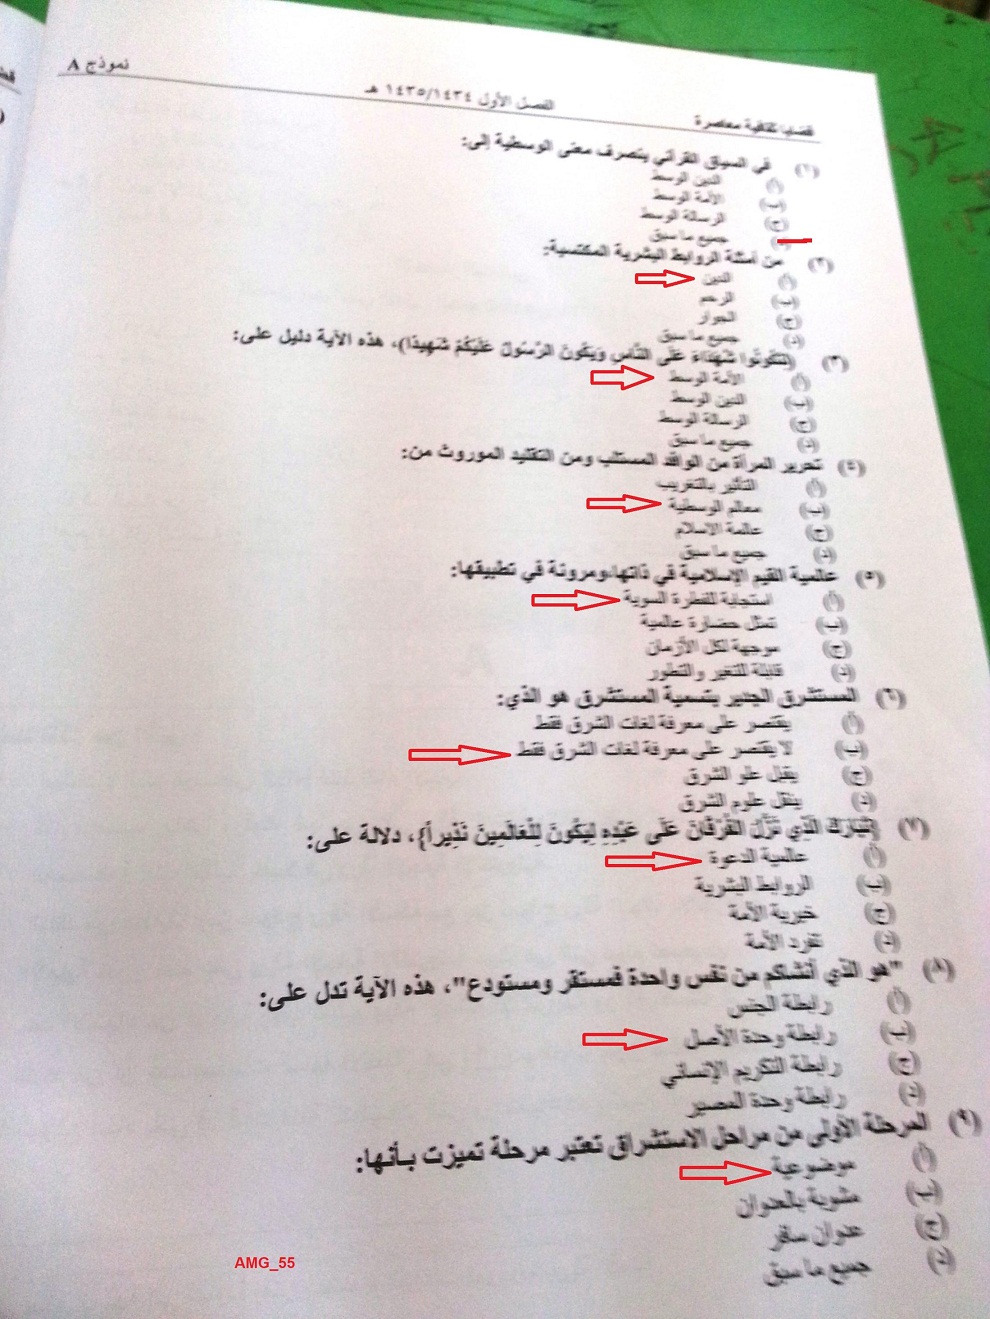 نموذج A
الفصل الأول ١٤٣٥/١٤٣٤ هـ
قضايا ثقافية معاصرة
(١) في السياق القرآني يتصرف معنى الوسطية إلى:
(أ) الدين الوسط
(ب) الأمة الوسط
(ج) الرسالة الوسط
(د) جميع ما سبق
(٢) من أمثلة الروابط البشرية المكتسبة:
(أ) الدين
(ب) الرحم
(ج) الجوار
(د) جميع ما سبق
(٣) (لتكونوا شُهَدَاءَ عَلَى النَّاسِ وَيَكُونَ الرَّسُولُ عَلَيْكُمْ شَهِيدًا)، هذه الآية دليل على:
(أ) الأمة الوسط
(ب) الدين الوسط
(ج) الرسالة الوسط
(د) جميع ما سبق
(٤) تحرير المرأة من الوافد المستلب ومن التقليد الموروث من:
(أ) التأثير بالتغريب
(ب) معالم الوسطية
(ج) عالمة الاسلام
(د) جميع ما سبق
(٥) عالمية القيم الإسلامية في ذاتها،ومرونة في تطبيقها:
(أ) استجابة للفطرة السوية
(ب) تمثل حضارة عالمية
(ج) موجهة لكل الأزمان
(د) قابلة للتغير والتطور
(٦) المستشرق الجدير بتسمية المستشرق هو الذي:
(أ) يقتصر على معرفة لغات الشرق فقط
(ب) لا يقتصر على معرفة لغات الشرق فقط
(ج) يقبل علو الشرق
(د) ينقل علوم الشرق
(٧) {تَبَارَكَ الَّذِي نَزَّلَ الْفُرْقَانَ عَلَى عَبْدِهِ لِيَكُونَ لِلْعَالَمِينَ نَذِيراً}، دلالة على:
(أ) عالمية الدعوة
(ب) الروابط البشرية
(ج) خيرية الأمة
(د) تفرد الأمة
(٨) "هو الذي أنشاكم من نفس واحدة فمستقر ومستودع"، هذه الآية تدل على:
(أ) رابطة الجنس
(ب) رابطة وحدة الأصل
(ج) رابطة التكريم الإنساني
(د) رابطة وحدة المصير
(٩) المرحلة الأولى من مراحل الاستشراق تعتبر مرحلة تميزت بأنها:
(أ) موضوعية
(ب) مشوبة بالعدوان
(ج) عدوان سافر
(د) جميع ما سبق
AMG_55